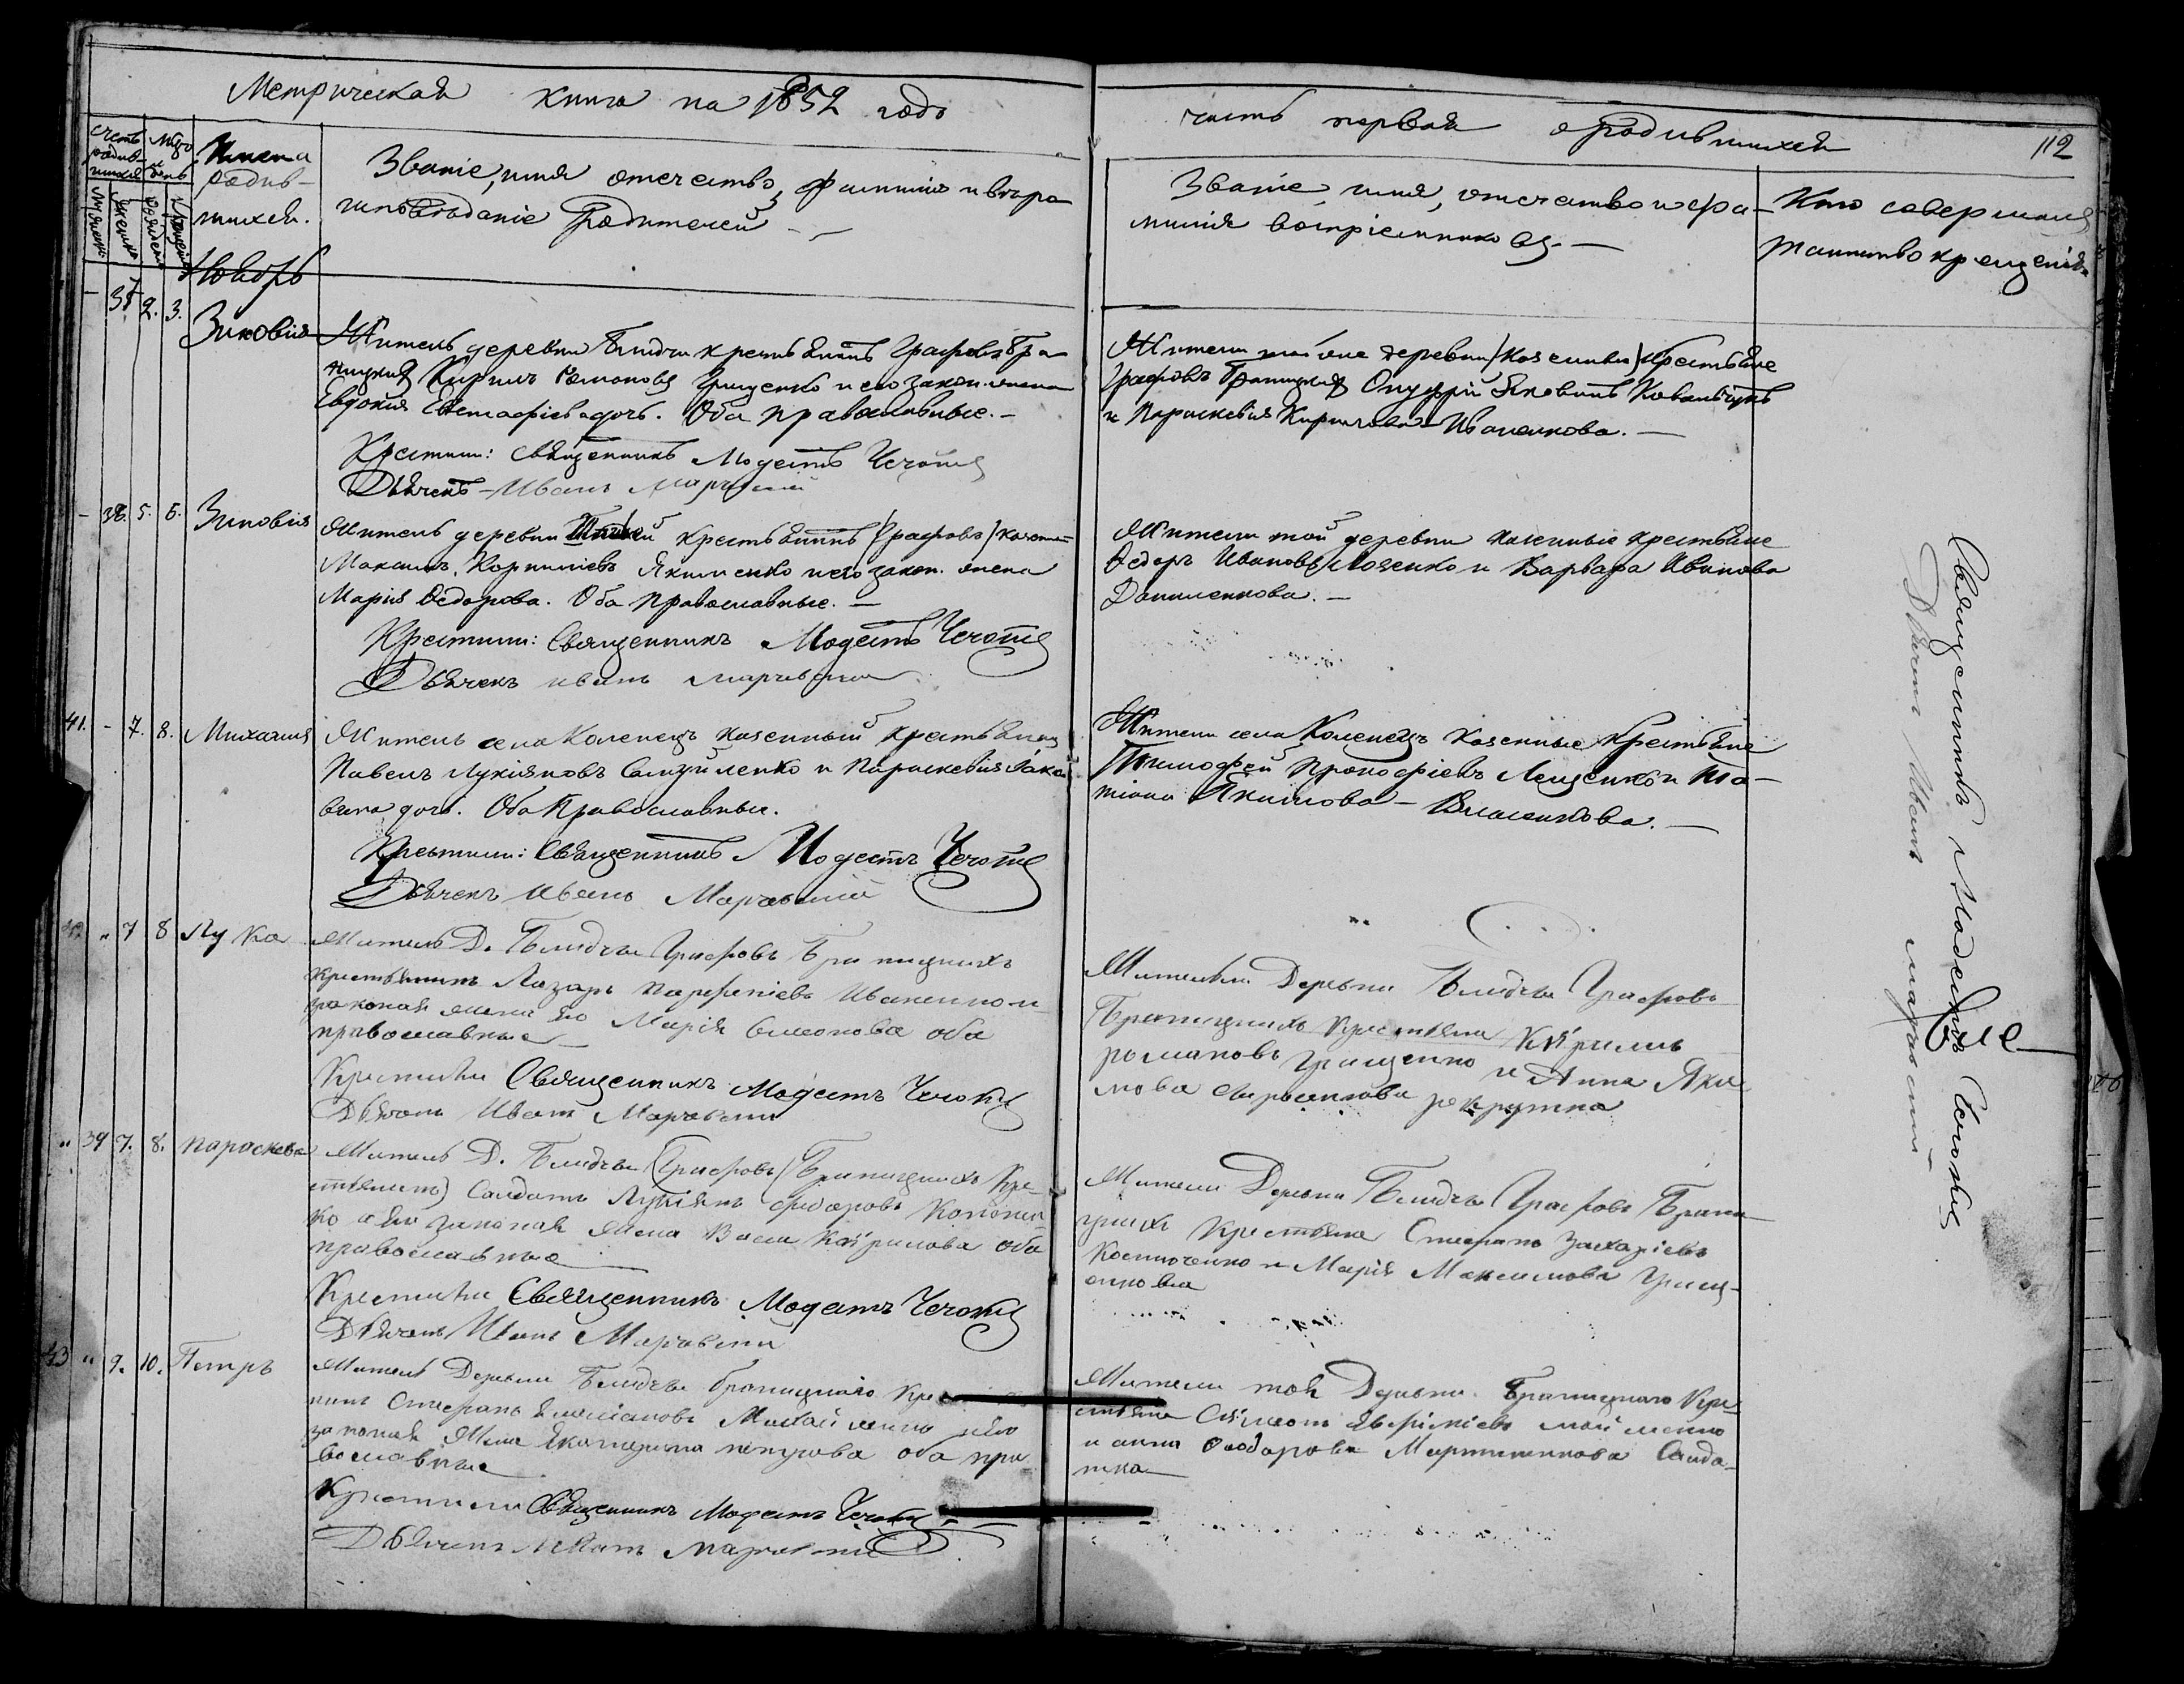 Метрическая книга на 1852 годъ
часть первая о родившихся
112
Счетъ родив-шихся
Мѣсяцъ и день
Имена родив-шихся.
Званіе, имя отечество, фамилія и вѣро-
исповѣданіе Родителей
Званіе, имя, отечество и фа-
милія воспріемниковъ.
Кто совершалъ
таинство крещенія
Ноябрь
- 37 2. 3.
Зиновія
Житель деревни Блидчи крестьянинъ Графовъ Бра-
ницкихъ Кирилъ Романовъ Грищенко и его закон. жена
Евдокия Евстафіева дочь. Оба православные. -
Крестили: Священникъ Модестъ Чехотъ
Дьячекъ - Иванъ
Жители той же деревни (Казенные) крестьяне
Графовъ Браницкихъ Онуфрій Яковинъ Ковальчукъ
и Параскевія Кирилова Иваненкова. -
- 38. 5. 6. Зиновія
Житель деревни крестьянинъ (Графовъ)
Максимъ Корниліевъ Якименко и его закон. жена
Марія Ѳедорова. Оба православные. -
Крестили: Священникъ Модестъ Чехотъ
Дьячекъ Иванъ
Жители той деревни казенные крестьяне
Ѳедоръ Ивановъ Лозенко и Варвара Иванова
Даниленкова. -
41. - 7. 8. Михаилъ
Житель села Коленецъ казенный крестьянинъ
Павелъ Лукіяновъ и Параскевія Іако-
влева дочь. Оба Православные.
Крестили: Священникъ Модестъ Чехотъ
Дьячекъ Иванъ
Жители села Коленецъ Казенные Крестьяне
Тимофей Прокофіевъ Лещенко и Та-
тіана Якимова - Власенкова. -
42 " 7 8 Лука
Житель Д. Блидчи Графовъ Браницкихъ
крестьянинъ Лазарь Парфеніевъ Иваненко и
законая жена его Марія Симонова оба
православные
Крестили Священникъ Модестъ Чехотъ
Дьячекъ Иванъ
Жители Деревни Блидчи Графовъ
Браницкихъ Крестьяне Кирилъ
романовъ Грищенко и Анна Яки-
мова рекрутка
" 39 7. 8. Параскева
Житель Д. Блидчи (Графовъ Браницкихъ Кре-
стьянинъ) Солдатъ Лукіянъ федоровъ
ко и его законая жена Васи Кирилова оба
православные
Крестили Священникъ Модестъ Чехотъ
Дьячекъ Иванъ
Жители Деревни Блидчи Графовъ Брани-
цкихъ Крестьяне Стефанъ Захаріевъ
Костюченко и Марія Максимова Грищ-
енкова
43 " 9. 10. Петръ
Житель Деревни Блидчи Браницкаго
нинъ Стефанъ Емеліановъ и его
законая Жена Екатерина оба пра-
вославные
Крестили Священникъ Модестъ Чехотъ
Дьячекъ Иванъ
Жители той Деревни Браницкаго Кре-
стьяне
и анна Феодорова Мартиненкова Солда-
тка
Священникъ Модестъ Чехотъ
Дьячекъ Иванъ